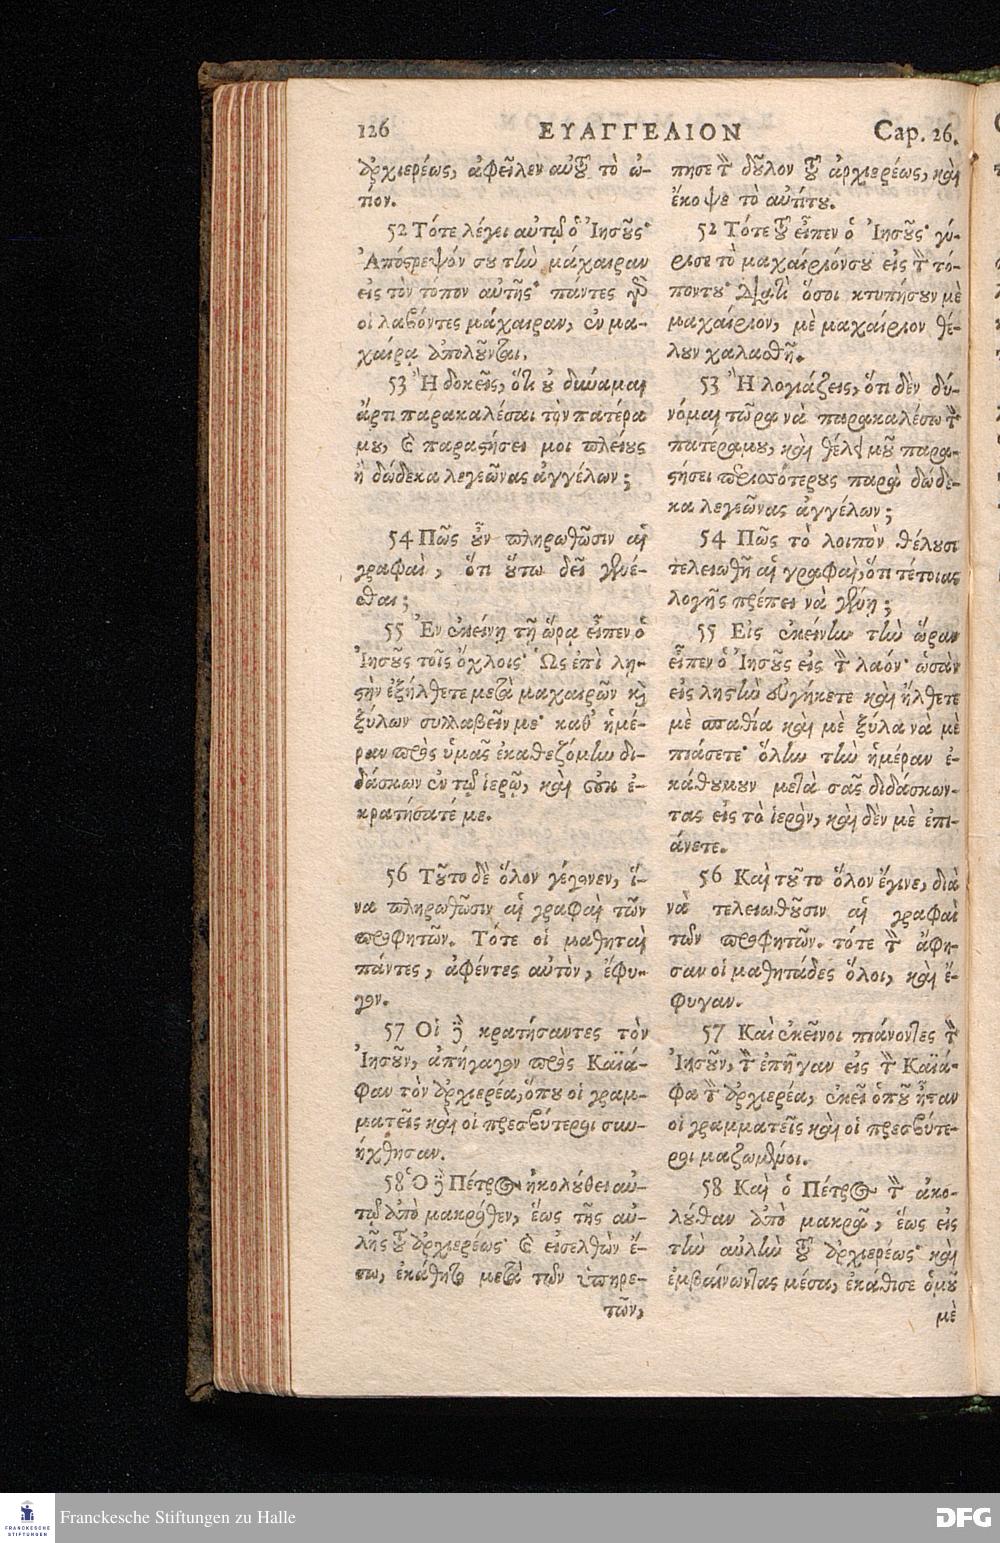 126 ΕΥΑΓΓΕΛΙΟΝ Cap. 26.
ἀρχιερέως, ἀφεῖλεν αὐτοῦ τὸ ὠ-
τίον.
52 Τότε λέγει αὐτῷ ὁ Ἰησοῦς·
Ἀπόστρεψόν σου τὴν μάχαιραν
εἰς τὸν τόπον αὐτῆς· πάντες γὸ
οἱ λαβόντες μάχαιραν, ἐν μα-
χαίρᾳ ἀπολοῦνται.
53 Ἢ δοκεῖς, ὅτι οὐ δύναμαι
ἄρτι παρακαλέσαι τὸν πατέρα
μου, καὶ παραστήσει μοι πλείους
ἢ δώδεκα λεγεῶνας ἀγγέλων;
54 Πῶς οὖν πληρωθῶσιν αἱ
γραφαὶ, ὅτι οὕτω δεῖ γενέ-
σθαι;
55 Ἐν ἐκείνῃ τῇ ὥρᾳ εἶπεν ὁ
Ἰησοῦς τοῖς ὄχλοις· Ὡς ἐπὶ λη-
στὴν ἐξήλθετε μετὰ μαχαιρῶν καὶ
ξύλων συλλαβεῖν με· καθ' ἡμέ-
ραν πρὸς ὑμᾶς ἐκαθεζόμην δι-
δάσκων ἐν τῷ ἱερῷ, καὶ οὐκ ἐ-
κρατήσατέ με.
56 Τοῦτο δὲ ὅλον γέγονεν, ἵ-
να πληρωθῶσιν αἱ γραφαὶ τῶν
προφητῶν. Τότε οἱ μαθηταὶ
πάντες, ἀφέντες αὐτὸν, ἔφυ-
γον.
57 Οἱ δὲ κρατήσαντες τὸν
Ἰησοῦν, ἀπήγαγον πρὸς Καϊά-
φαν τὸν ἀρχιερέα, ὅπου οἱ γραμ-
ματεῖς καὶ οἱ πρεσβύτεροι συν-
ήχθησαν.
58 Ὁ δὲ Πέτρος ἠκολούθει αὐ-
τῷ ἀπὸ μακρόθεν, ἕως τῆς αὐ-
λῆς τοῦ ἀρχιερέως· καὶ εἰσελθὼν ἔ-
σω, ἐκάθητο μετὰ τῶν ὑπηρε-
τῶν,
πησε τὸν δοῦλον τοῦ ἀρχιερέως, καὶ
ἔκοψε τὸ αὐτίτου.
52 Τότε τοῦ εἶπεν ὁ Ἰησοῦς· γύ-
ρισε τὸ μαχαίριόνσου εἰς τὸν τό-
ποντου· διατὶ ὅσοι κτυπήσουν μὲ
μαχαίριον, μὲ μαχαίριον θέ-
λουν χαλασθῆ.
53 Ἢ λογιάζεις, ὅτι δὲν δύ-
νομαι τῶρα νὰ παρακαλέσω τὸν
πατέραμου, καὶ θέλει μοῦ παρα-
στήσει περισσότερους παρὰ δώδε-
κα λεγεῶνας ἀγγέλων;
54 Πῶς τὸ λοιπὸν θέλουσι
τελειωθῆ αἱ γραφαὶ, ὅτι τέτοιας
λογῆς πρέπει νὰ γένῃ;
55 Εἰς ἐκείνην τὴν ὥραν
εἶπεν ὁ Ἰησοῦς εἰς τὸν λαόν· ὡσὰν
εἰς ληστὴν εὐγήκετε καὶ ἤλθετε
μὲ σπαθία καὶ μὲ ξύλα νὰ μὲ
πιάσετε· ὅλην τὴν ἡμέραν ἐ-
κάθουμουν μετὰ σᾶς διδάσκων-
τας εἰς τὸ ἱερὸν, καὶ δὲν μὲ ἐπι-
άνετε.
56 Καὶ τοῦτο ὅλον ἔγινε, διὰ
νὰ τελειωθοῦσιν αἱ γραφαὶ
τῶν προφητῶν. τότε τὸν ἄφη-
σαν οἱ μαθητάδες ὅλοι, καὶ ἔ-
φυγαν.
57 Καὶ ἐκεῖνοι πιάνοντες τὸν
Ἰησοῦν, τὸν ἐπῆγαν εἰς τὸν Καϊά-
φα τὸν ἀρχιερέα, ἐκεῖ ὁποῦ ἦταν
οἱ γραμματεῖς καὶ οἱ πρεσβύτε-
ροι μαζωμένοι.
58 Καὶ ὁ Πέτρος τὸν ἀκο-
λούθαν ἀπὸ μακρᾶ, ἕως εἰς
τὴν αὐλὴν τοῦ ἀρχιερέως· καὶ
ἐμβαίνωντας μέσα, ἐκάθισε ὁμοῦ
μὲ
FRANCKESCHE
STIFTUNGEN
Franckesche Stiftungen zu Halle
DFG